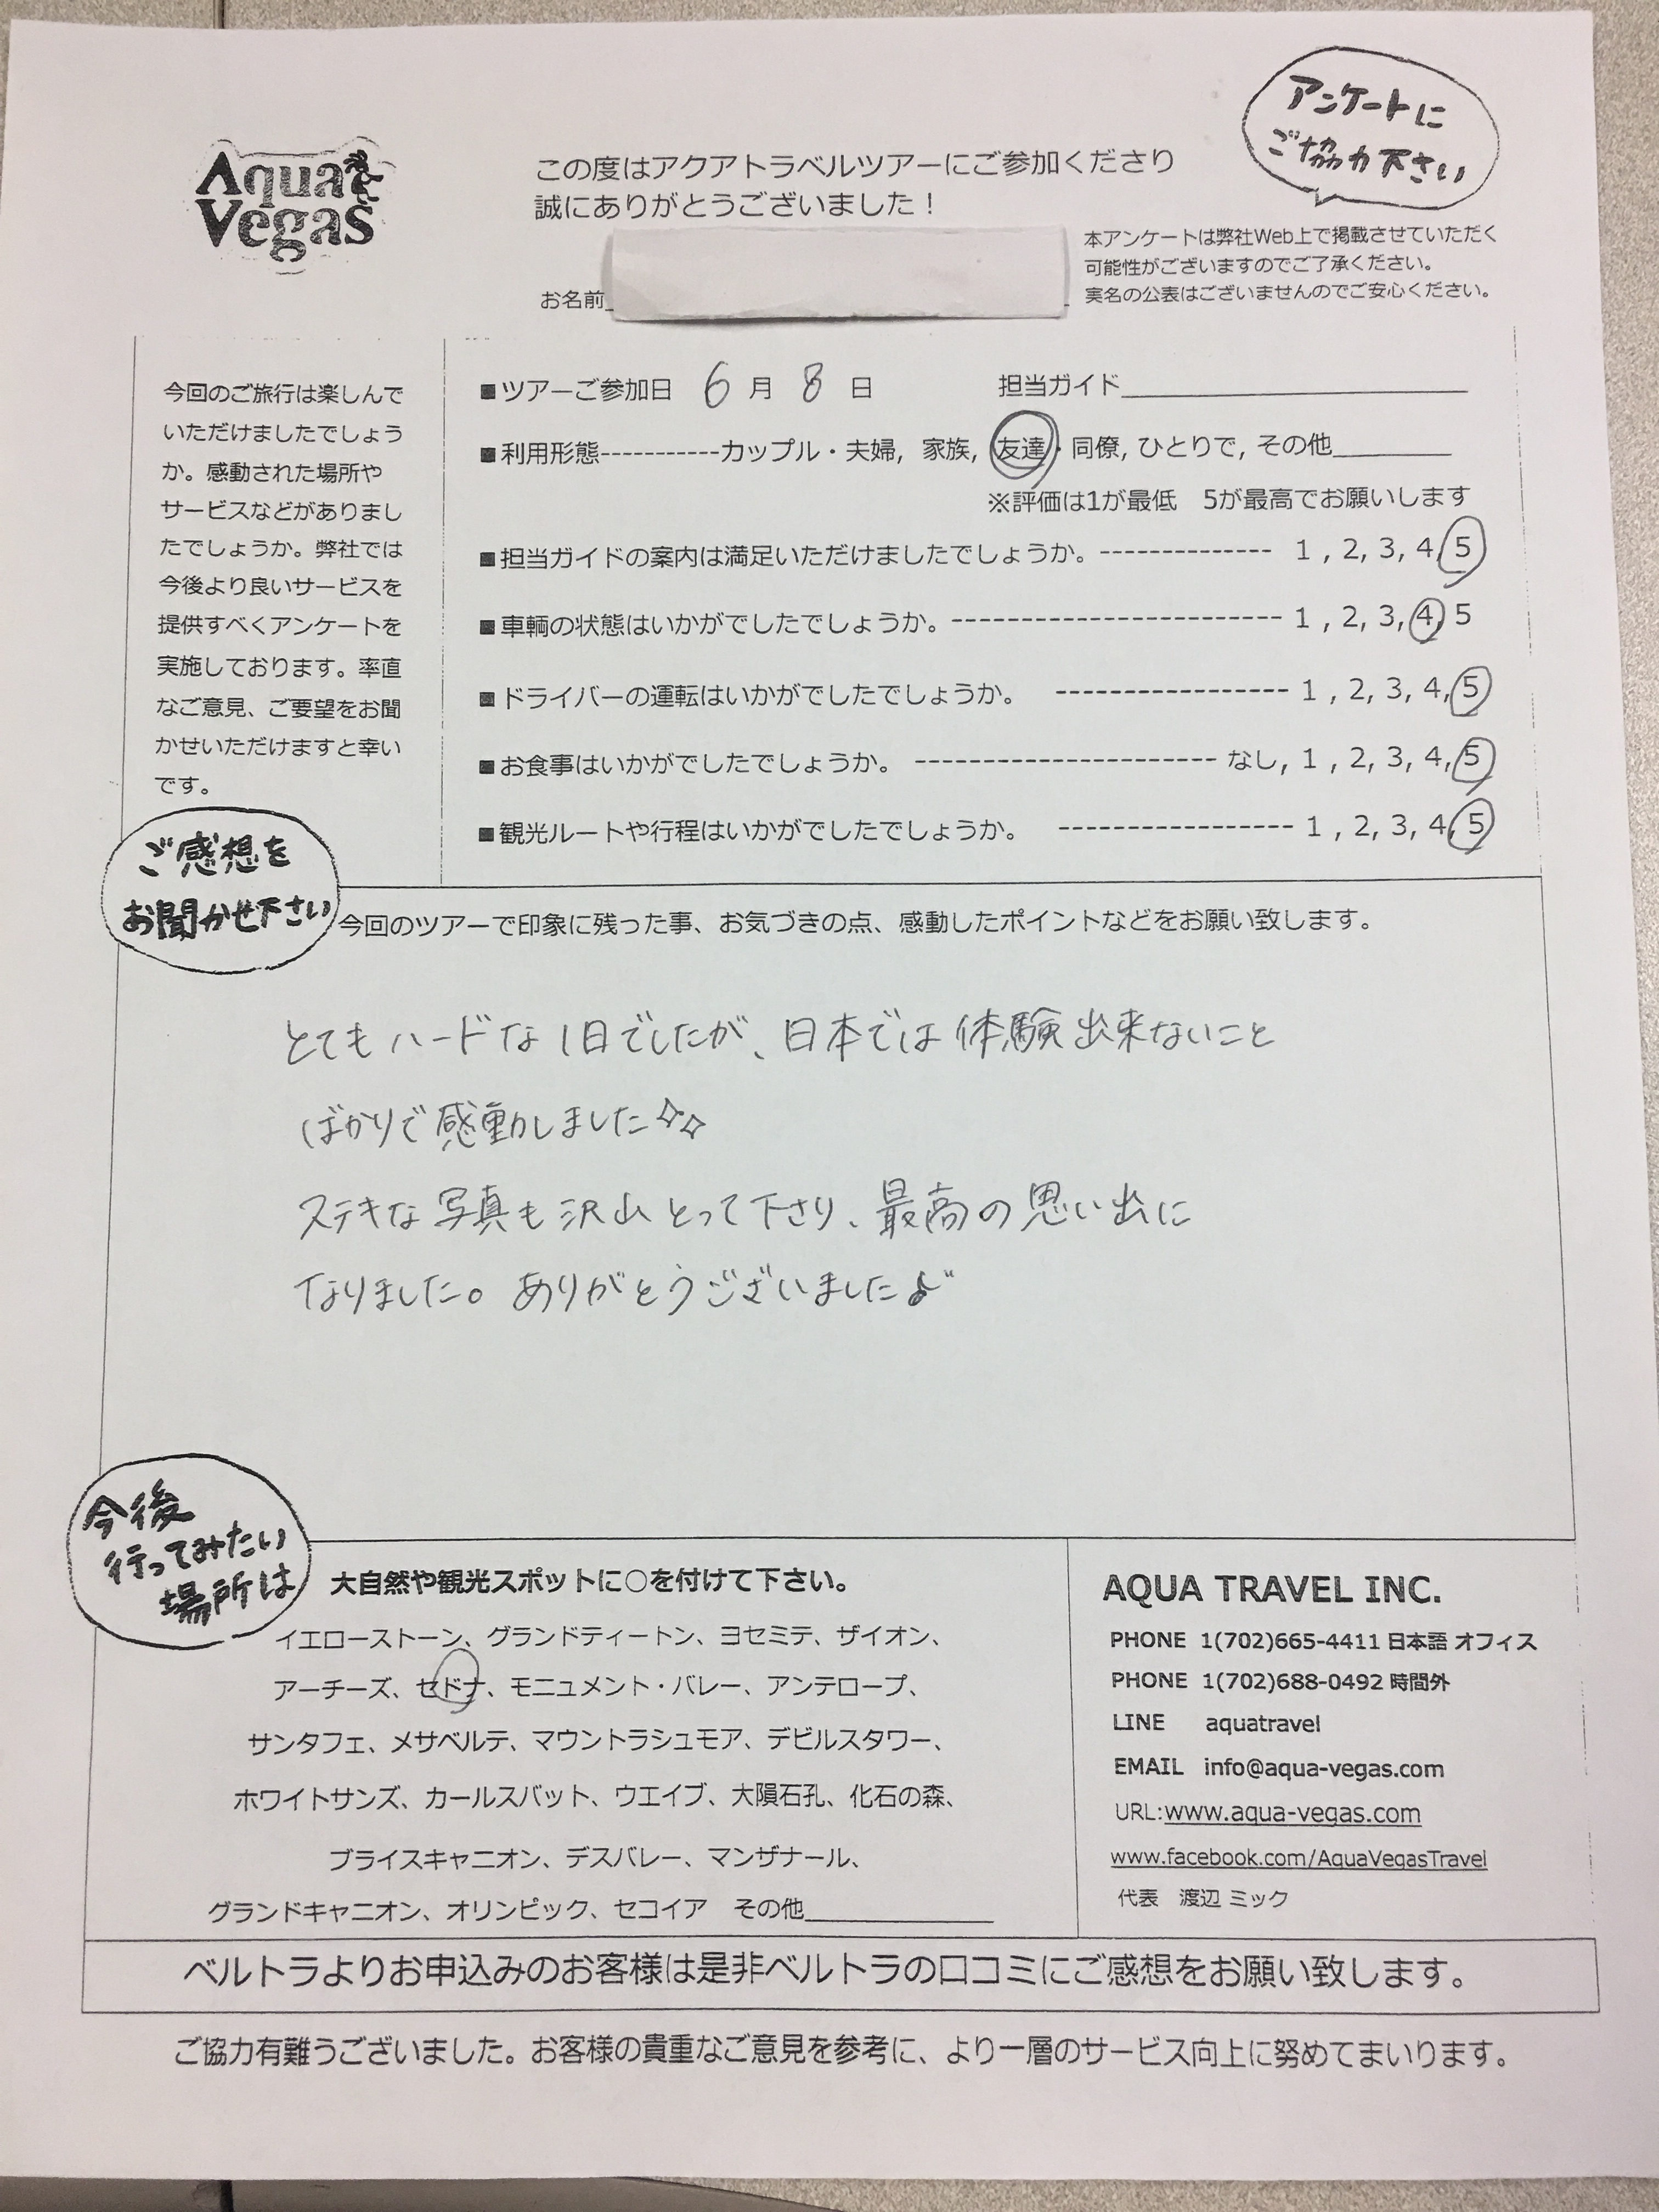 アンケートに
ご協力下さい
Aqua
Vegas
この度はアクアトラベルツアーにご参加くださり
誠にありがとうございました!
お名前
本アンケートは弊社Web上で掲載させていただく
可能性がございますのでご了承ください。
実名の公表はございませんのでご安心ください。
今回のご旅行は楽しんで
いただけましたでしょう
か。感動された場所や
サービスなどがありまし
たでしょうか。弊社では
今後より良いサービスを
提供すべくアンケートを
実施しております。率直
なご意見、ご要望をお聞
かせいただけますと幸い
です。
■ツアーご参加日 6月 8日 担当ガイド
■利用形態-----------カップル・夫婦, 家族, 友達・同僚, ひとりで, その他
※評価は1が最低 5が最高でお願いします
■担当ガイドの案内は満足いただけましたでしょうか。-------------- 1 , 2, 3, 4, 5
■車輌の状態はいかがでしたでしょうか。--------------------------- 1 , 2, 3, 4, 5
■ドライバーの運転はいかがでしたでしょうか。 ------------------- 1 , 2, 3, 4, 5
■お食事はいかがでしたでしょうか。 ------------------------ なし, 1 , 2, 3, 4, 5
■観光ルートや行程はいかがでしたでしょうか。 ------------------- 1 , 2, 3, 4, 5
ご感想を
お聞かせ下さい
今回のツアーで印象に残った事、お気づきの点、感動したポイントなどをお願い致します。
とてもハードな1日でしたが、日本では体験出来ないこと
ばかりで感動しました✧✧
ステキな写真も沢山とって下さり、最高の思い出に
なりました。ありがとうございました♪
今後
行ってみたい
場所は
大自然や観光スポットに○を付けて下さい。
イエローストーン、グランドティートン、ヨセミテ、ザイオン、
アーチーズ、セドナ、モニュメント・バレー、アンテロープ、
サンタフェ、メサベルテ、マウントラシュモア、デビルスタワー、
ホワイトサンズ、カールスバット、ウエイブ、大隕石孔、化石の森、
ブライスキャニオン、デスバレー、マンザナール、
グランドキャニオン、オリンピック、セコイア その他
AQUA TRAVEL INC.
PHONE 1(702)665-4411 日本語 オフィス
PHONE 1(702)688-0492 時間外
LINE aquatravel
EMAIL info@aqua-vegas.com
URL:www.aqua-vegas.com
www.facebook.com/AquaVegasTravel
代表 渡辺 ミック
ベルトラよりお申込みのお客様は是非ベルトラの口コミにご感想をお願い致します。
ご協力有難うございました。お客様の貴重なご意見を参考に、より一層のサービス向上に努めてまいります。